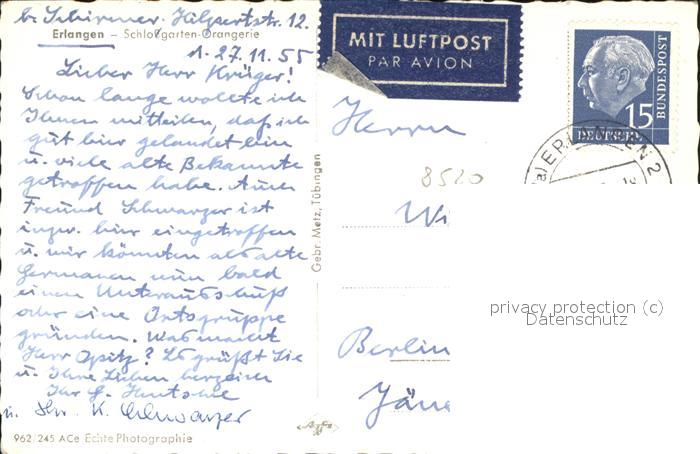 b. Schirmer, Hilpertstr. 12.
Erlangen – Schloßgarten-Orangerie
27.11.55
Lieber Herr Krüger!
Schon lange wollte ich
Ihnen mitteilen, daß ich
gut hier gelandet bin
u. viele alte Bekannte
getroffen habe. Auch
Freund Schwarzer ist
inzw. hier eingetroffen
u. wir könnten als alte
Germanen nun bald
einen Unterausschuß
oder eine Ortsgruppe
gründen. Was macht
Herr Opitz? Es grüßt Sie
u. Ihre Lieben herzlich
Ihr
u. Ihr K. Schwarzer
962/245 ACe Echte Photographie
Gebr. Metz, Tübingen
Agfa
MIT LUFTPOST
PAR AVION
15
DEUTSCHE
BUNDESPOST
ERLANGEN 2
Herrn
8520
Wi
Berlin
privacy protection (c)
Datenschutz